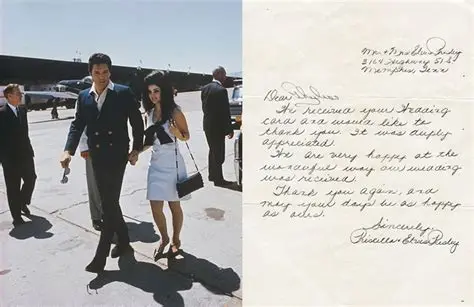 Mr. & Mrs Elvis Presley
3764 Highway 51 S
Memphis, Tenn
Dear
We received your Wedding
card and would like to
thank you. It was deeply
appreciated.
We are very happy at the
wonderful way our wedding
was received.
Thank you again, and
may your days be as happy
as ours.
Sincerely,
Priscilla & Elvis Presley